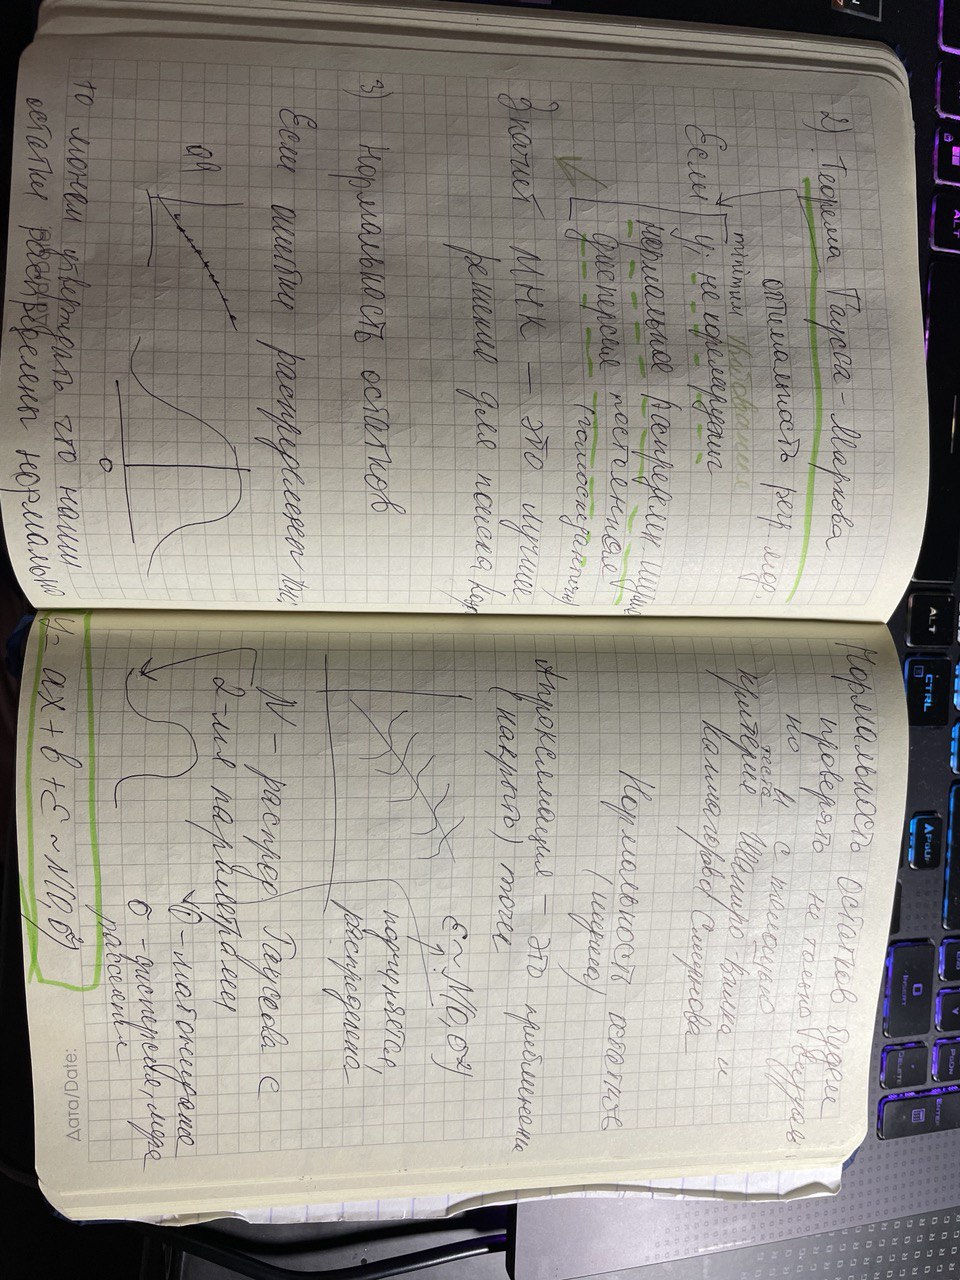 2) Теорема Гаусса - Маркова
оптимальность регр. мод.
minimum требования
Если yi не коррелируемы
нормальное распределен. шума
дисперсия постоянная
(гомоскедантичн)
Значит МНК — это лучшее
решение для поиска
3) Нормальность остатков
Если ошибки распределены так:
QQ
0
то можем утверждать что наши
остатки распределены нормально
Нормальность остатков будем
проверять не только визуаль
но и с помощью
теста
критерия Шапиро-Вилка и
Калмагорова Смирнова
Нормальность остатков
(шума)
Апроксимация — это приближение
(накрыто) точки
ε ~ N(0, σ²)
подчиняется,
распределена
N - распред Гауссова с
2-мя параметрами
0 - матожидание
σ - дисперсия, мера
рассеяния
y = ax + b + ε ~ N(0, σ²)
Дата/Date:
ALT
ALT
CTRL
PGUP
0
INSERT
DELETE
ENTER
PGDN
END